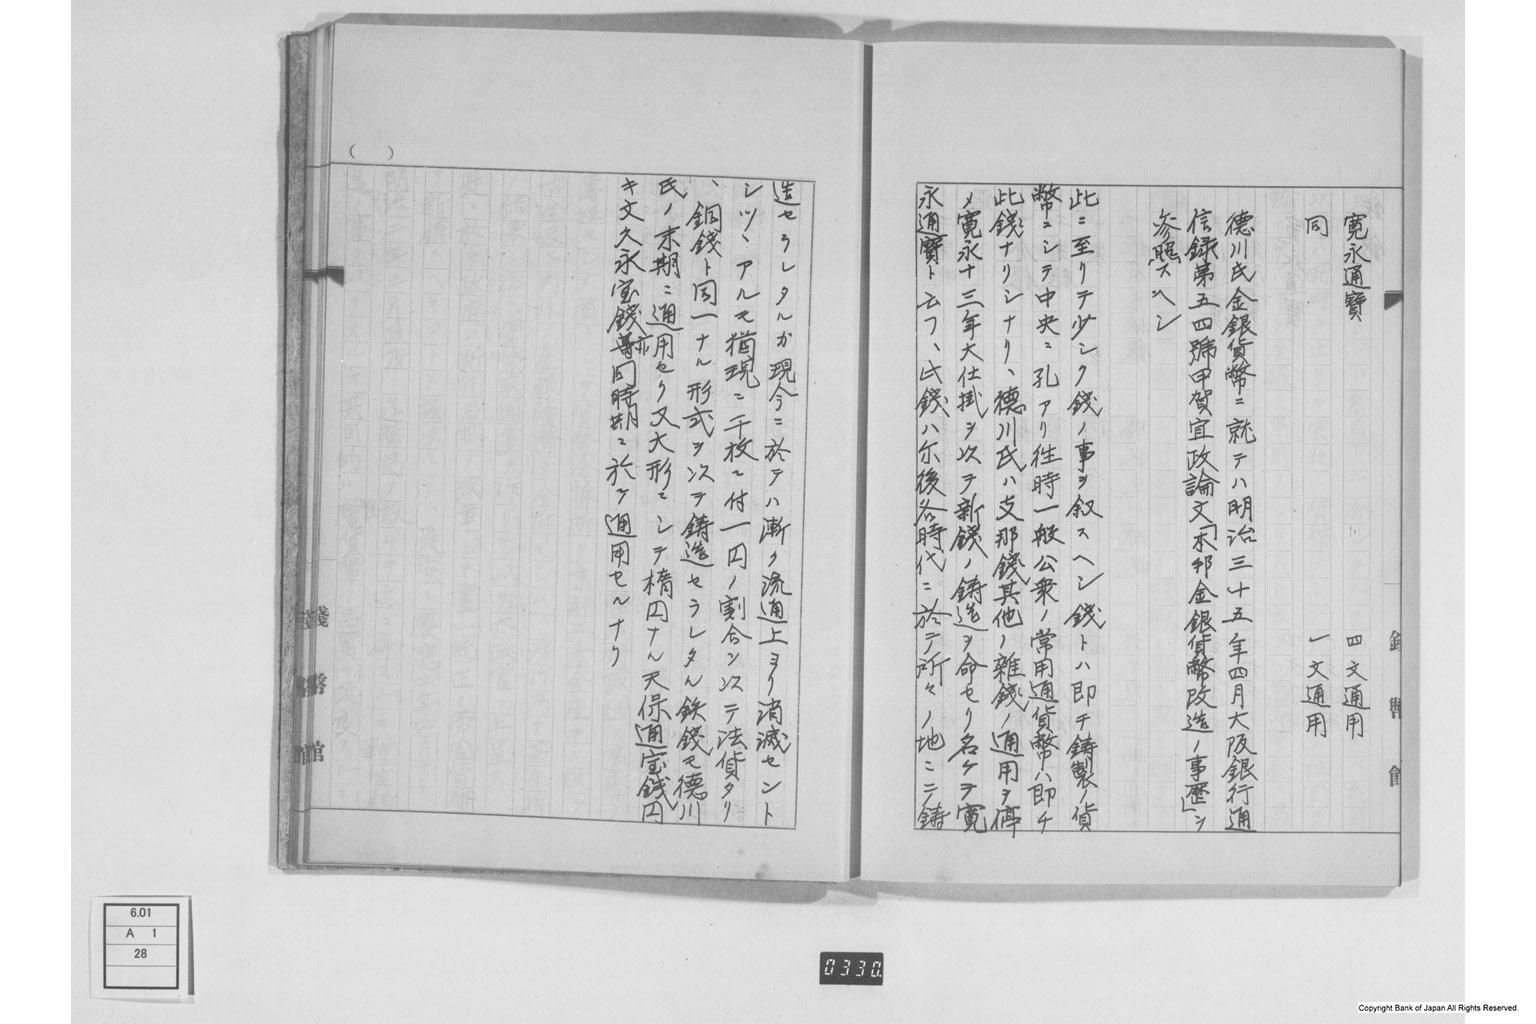 寛永通寶　四文通用
同　一文通用
德川氏金銀貨幣ニ就テハ明治三十五年四月大阪銀行通
信録第五四號甲賀宜政論文「本邦金銀貨幣改造ノ事歴」ヲ
参照スヘシ
此ニ至リテ少シク錢ノ事ヲ叙スヘシ錢トハ即チ鋳製ノ貨
幣ニシテ中央ニ孔アリ往時一般公衆ノ常用通貨幣ハ即チ
此錢ナリシナリ、德川氏ハ支那錢其他ノ雜錢ノ通用ヲ停
メ寛永十三年大仕掛ヲ以テ新錢ノ鋳造ヲ命セリ名ケテ寛
永通寶ト云フ、此錢ハ尓後各時代ニ於テ所々ノ地ニテ鋳
造セラレタルカ現今ニ於テハ漸ク流通上ヨリ消滅セント
シツヽアルモ猶現ニ千枚ニ付一円ノ割合ヲ以テ法貨タリ
、銅錢ト同一ナル形式ヲ以テ鋳造セラレタル鉄錢モ德川
氏ノ末期ニ通用セリ又大形ニシテ楕円ナル天保通宝錢円
キ文久永宝錢亦同時期ニ於テ通用セルナリ
(　)
錢幣館
6.01
A 1
28
0330
Copyright Bank of Japan All Rights Reserved.